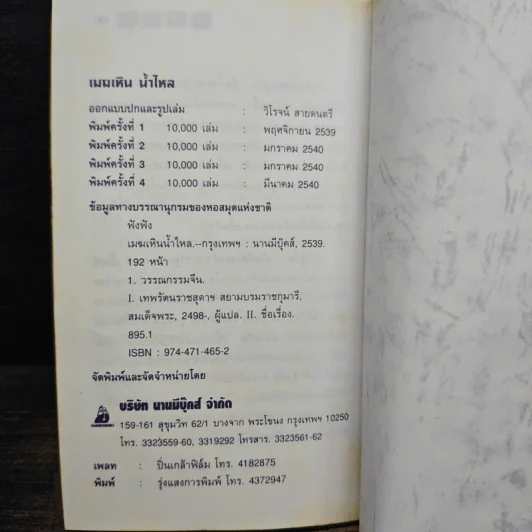 เมฆเหิน น้ำไหล
ออกแบบปกและรูปเล่ม : วิโรจน์ สายดนตรี
พิมพ์ครั้งที่ 1 10,000 เล่ม : พฤศจิกายน 2539
พิมพ์ครั้งที่ 2 10,000 เล่ม : มกราคม 2540
พิมพ์ครั้งที่ 3 10,000 เล่ม : มกราคม 2540
พิมพ์ครั้งที่ 4 10,000 เล่ม : มีนาคม 2540
ข้อมูลทางบรรณานุกรมของหอสมุดแห่งชาติ
ฟังฟัง
เมฆเหินน้ำไหล.--กรุงเทพฯ : นานมีบุ๊คส์, 2539.
192 หน้า
1. วรรณกรรมจีน.
I. เทพรัตนราชสุดาฯ สยามบรมราชกุมารี,
สมเด็จพระ, 2498-, ผู้แปล. II. ชื่อเรื่อง.
895.1
ISBN : 974-471-465-2
จัดพิมพ์และจัดจำหน่ายโดย
บริษัท นานมีบุ๊คส์ จำกัด
159-161 สุขุมวิท 62/1 บางจาก พระโขนง กรุงเทพฯ 10250
โทร. 3323559-60, 3319292 โทรสาร. 3323561-62
เพลท : ปิ่นเกล้าฟิล์ม โทร. 4182875
พิมพ์ : รุ่งแสงการพิมพ์ โทร. 4372947